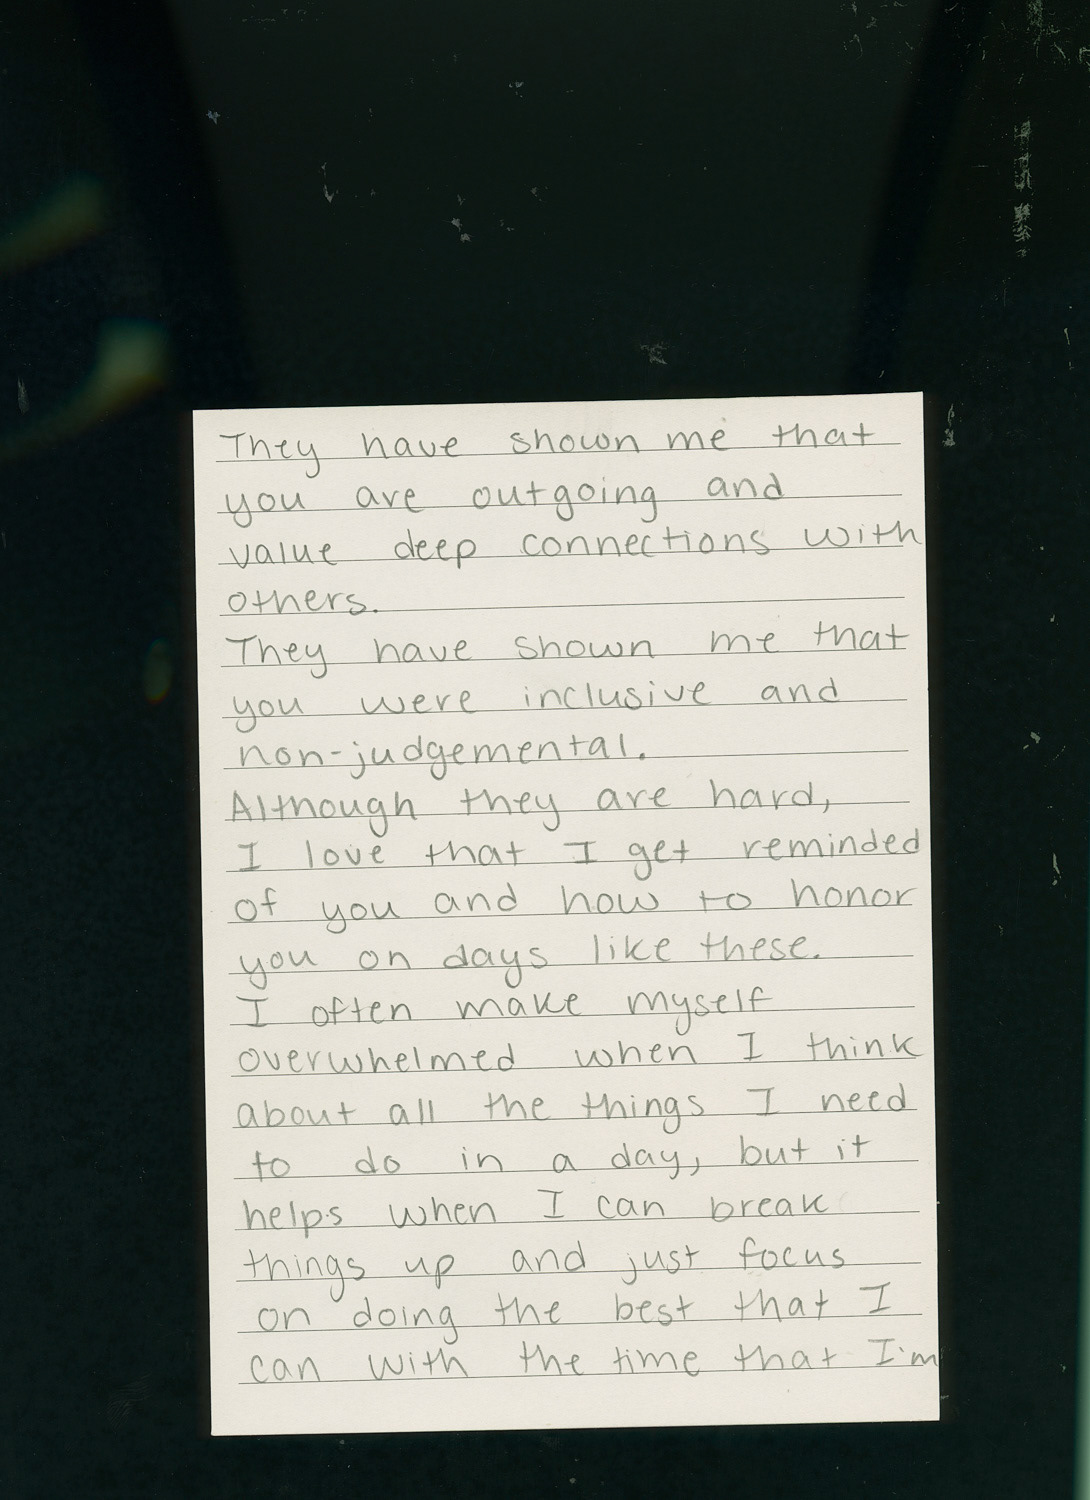 They have shown me that
you are outgoing and
value deep connections with
others.
They have shown me that
you were inclusive and
non-judgemental.
Although they are hard,
I love that I get reminded
of you and how to honor
you on days like these.
I often make myself
overwhelmed when I think
about all the things I need
to do in a day, but it
helps when I can break
things up and just focus
on doing the best that I
can with the time that I'm